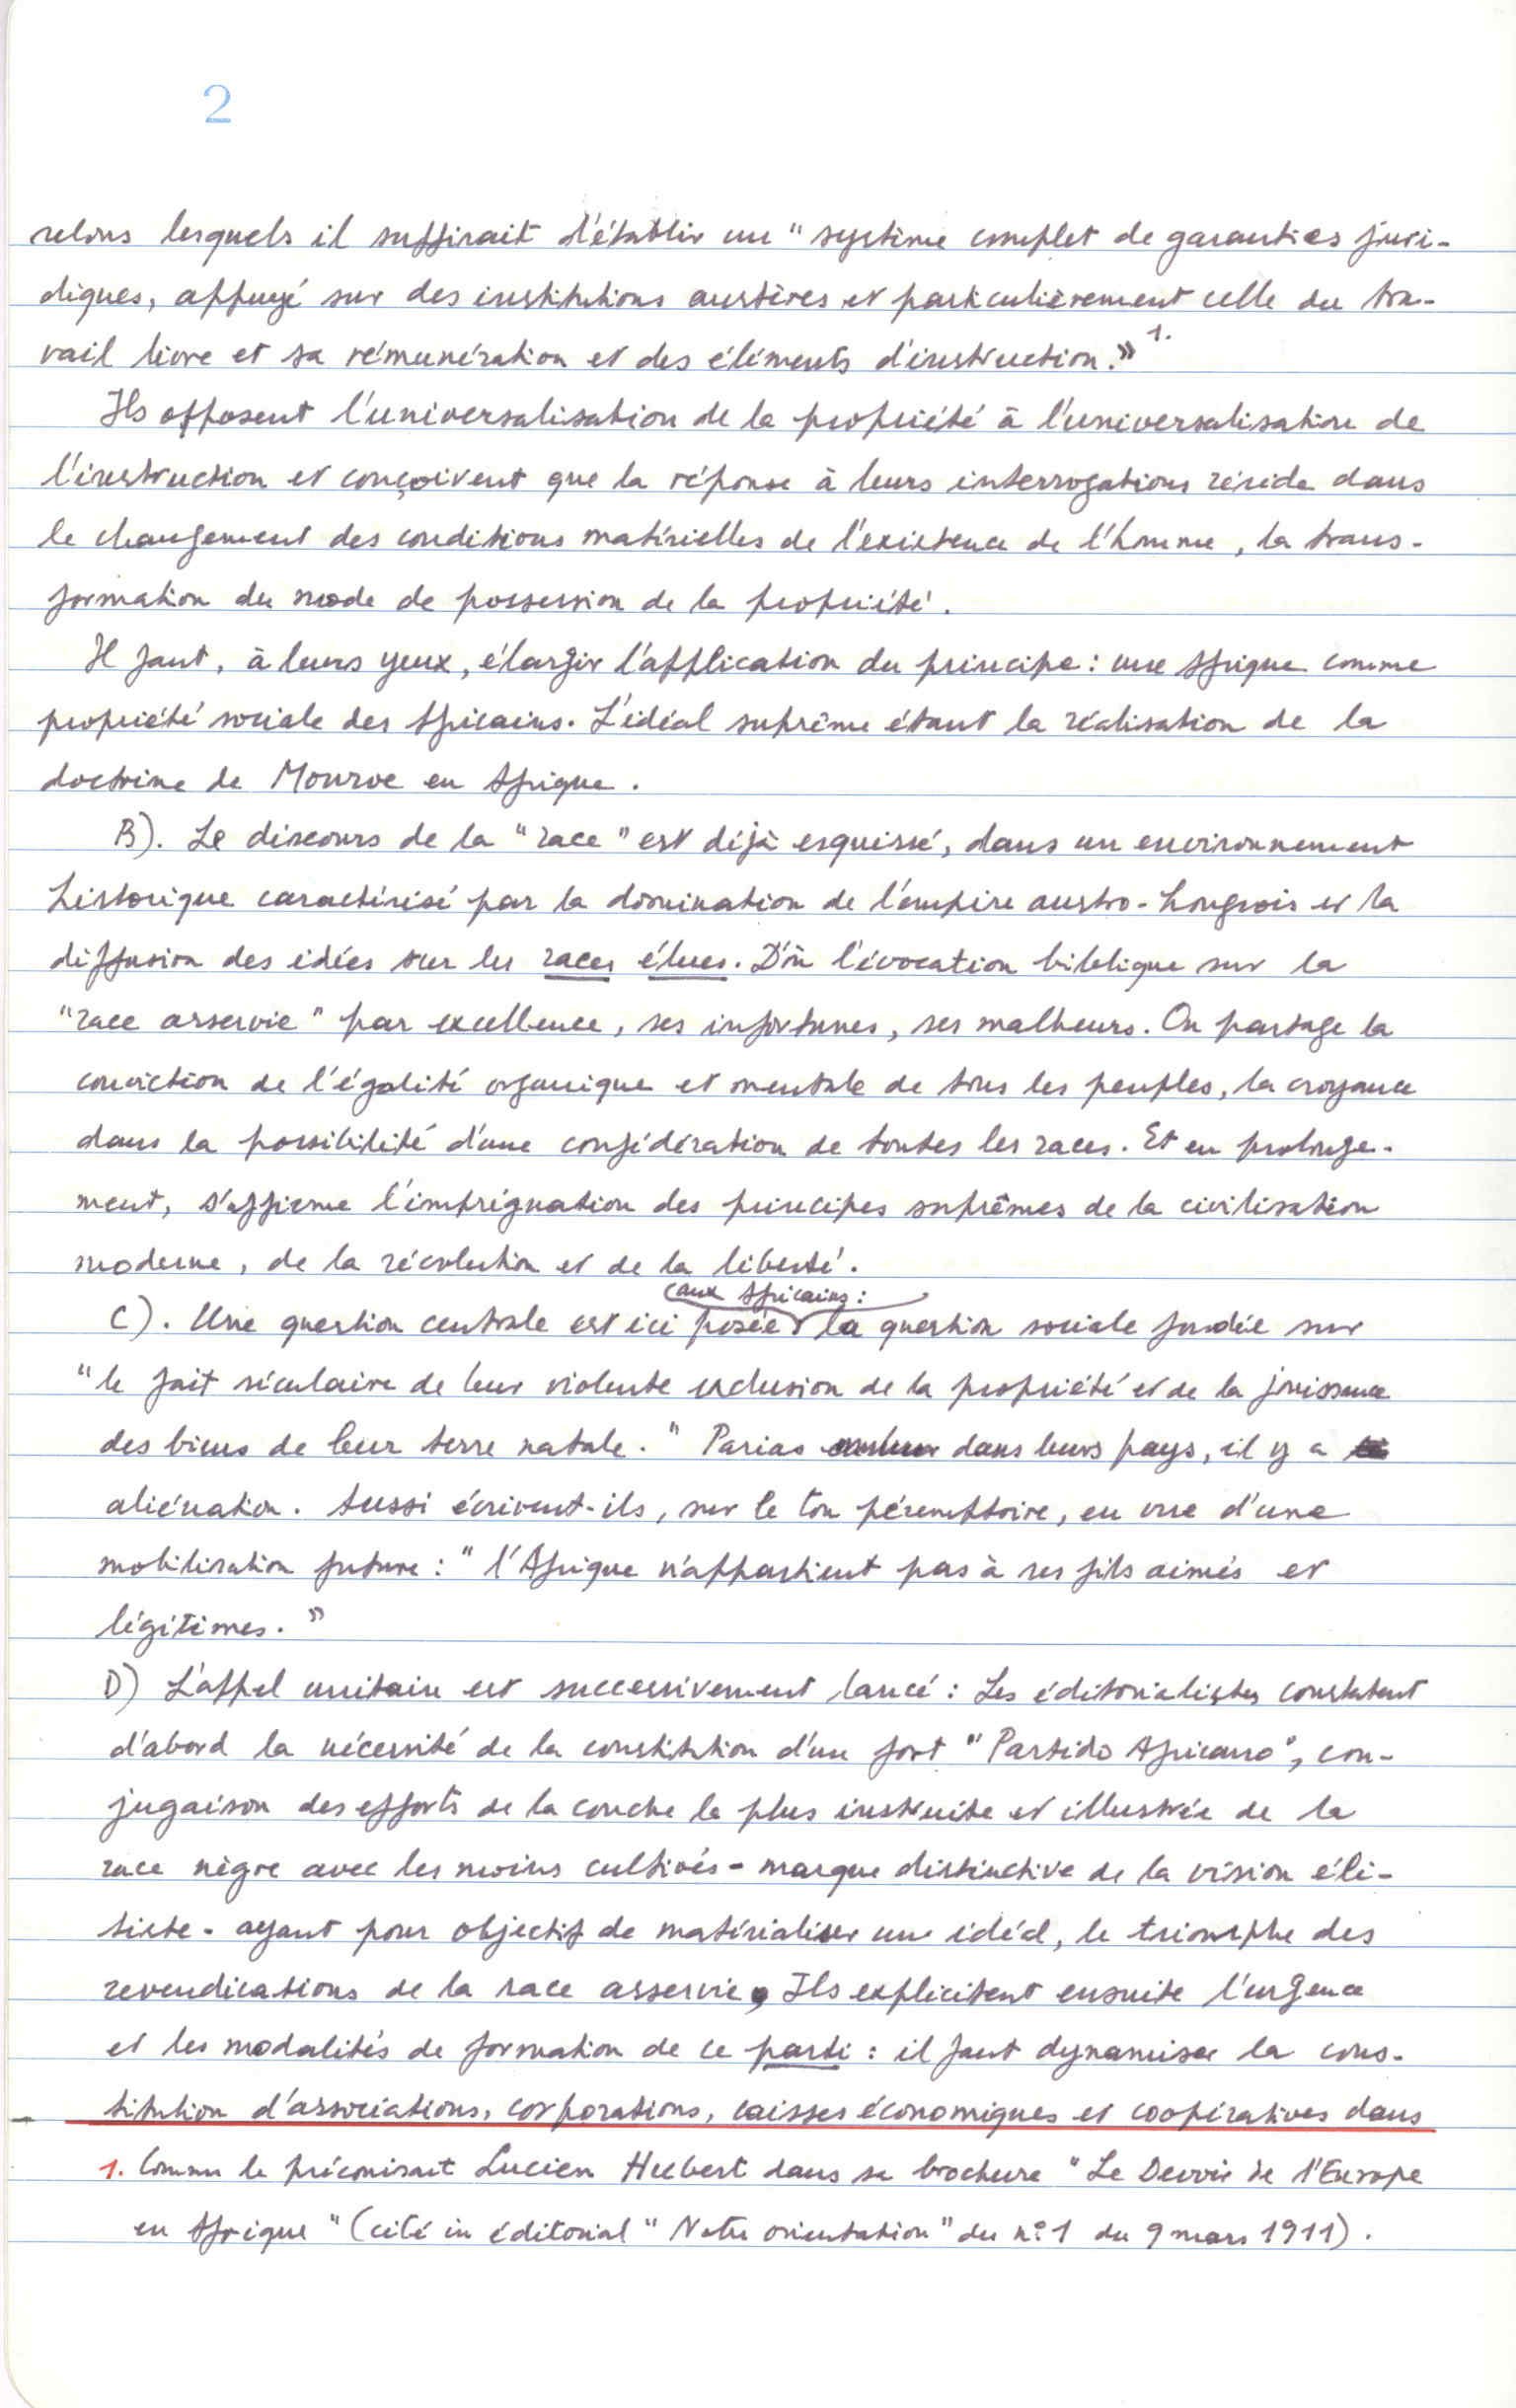 2
selons lesquels il suffirait d'établir un "système complet de garanties juri-
diques, appuyé sur des institutions austères et particulièrement celle du tra-
vail livre et sa rémunération et des éléments d'instruction.» 1.
Ils opposent l'universalisation de la propriété à l'universalisation de
l'instruction et conçoivent que la réponse à leurs interrogations réside dans
le changement des conditions matérielles de l'existence de l'homme, la trans-
formation du mode de possession de la propriété.
Il faut, à leurs yeux, élargir l'application du principe : une Afrique comme
propriété sociale des Africains. L'idéal suprême étant la réalisation de la
doctrine de Monroe en Afrique.
B). Le discours de la "race" est déjà esquissé, dans un environnement
historique caractérisé par la domination de l'empire austro-hongrois et la
diffusion des idées sur les races élues. D'où l'évocation biblique sur la
"race asservie" par excellence, ses infortunes, ses malheurs. On partage la
conviction de l'égalité organique et mentale de tous les peuples, la croyance
dans la possibilité d'une confédération de toutes les races. Et en prolonge-
ment, s'affirme l'imprégnation des principes suprêmes de la civilisation
moderne, de la révolution et de la liberté.
aux Africains :
C). Une question centrale est ici posée la question sociale fondée sur
"le fait séculaire de leur violente exclusion de la propriété et de la jouissance
des biens de leur terre natale." Parias dans leurs pays, il y a
aliénation. Aussi écrivent-ils, sur le ton péremptoire, en vue d'une
mobilisation future : "l'Afrique n'appartient pas à ses fils aimés et
légitimes.»
D) L'appel unitaire est successivement lancé : Les éditorialistes constatent
d'abord la nécessité de la constitution d'un fort "Partido Africano", con-
jugaison des efforts de la couche la plus instruite et illustrée de la
race nègre avec les moins cultivés - marque distinctive de la vision éli-
tiste - ayant pour objectif de matérialiser un idéal, le triomphe des
revendications de la race asservie. Ils explicitent ensuite l'urgence
et les modalités de formation de ce parti : il faut dynamiser la cons-
titution d'associations, corporations, caisses économiques et coopératives dans
1. Comme le préconisait Lucien Hubert dans sa brochure "Le Devoir de l'Europe
en Afrique" (cité in éditorial "Notre orientation" du nº1 du 9 mars 1911).